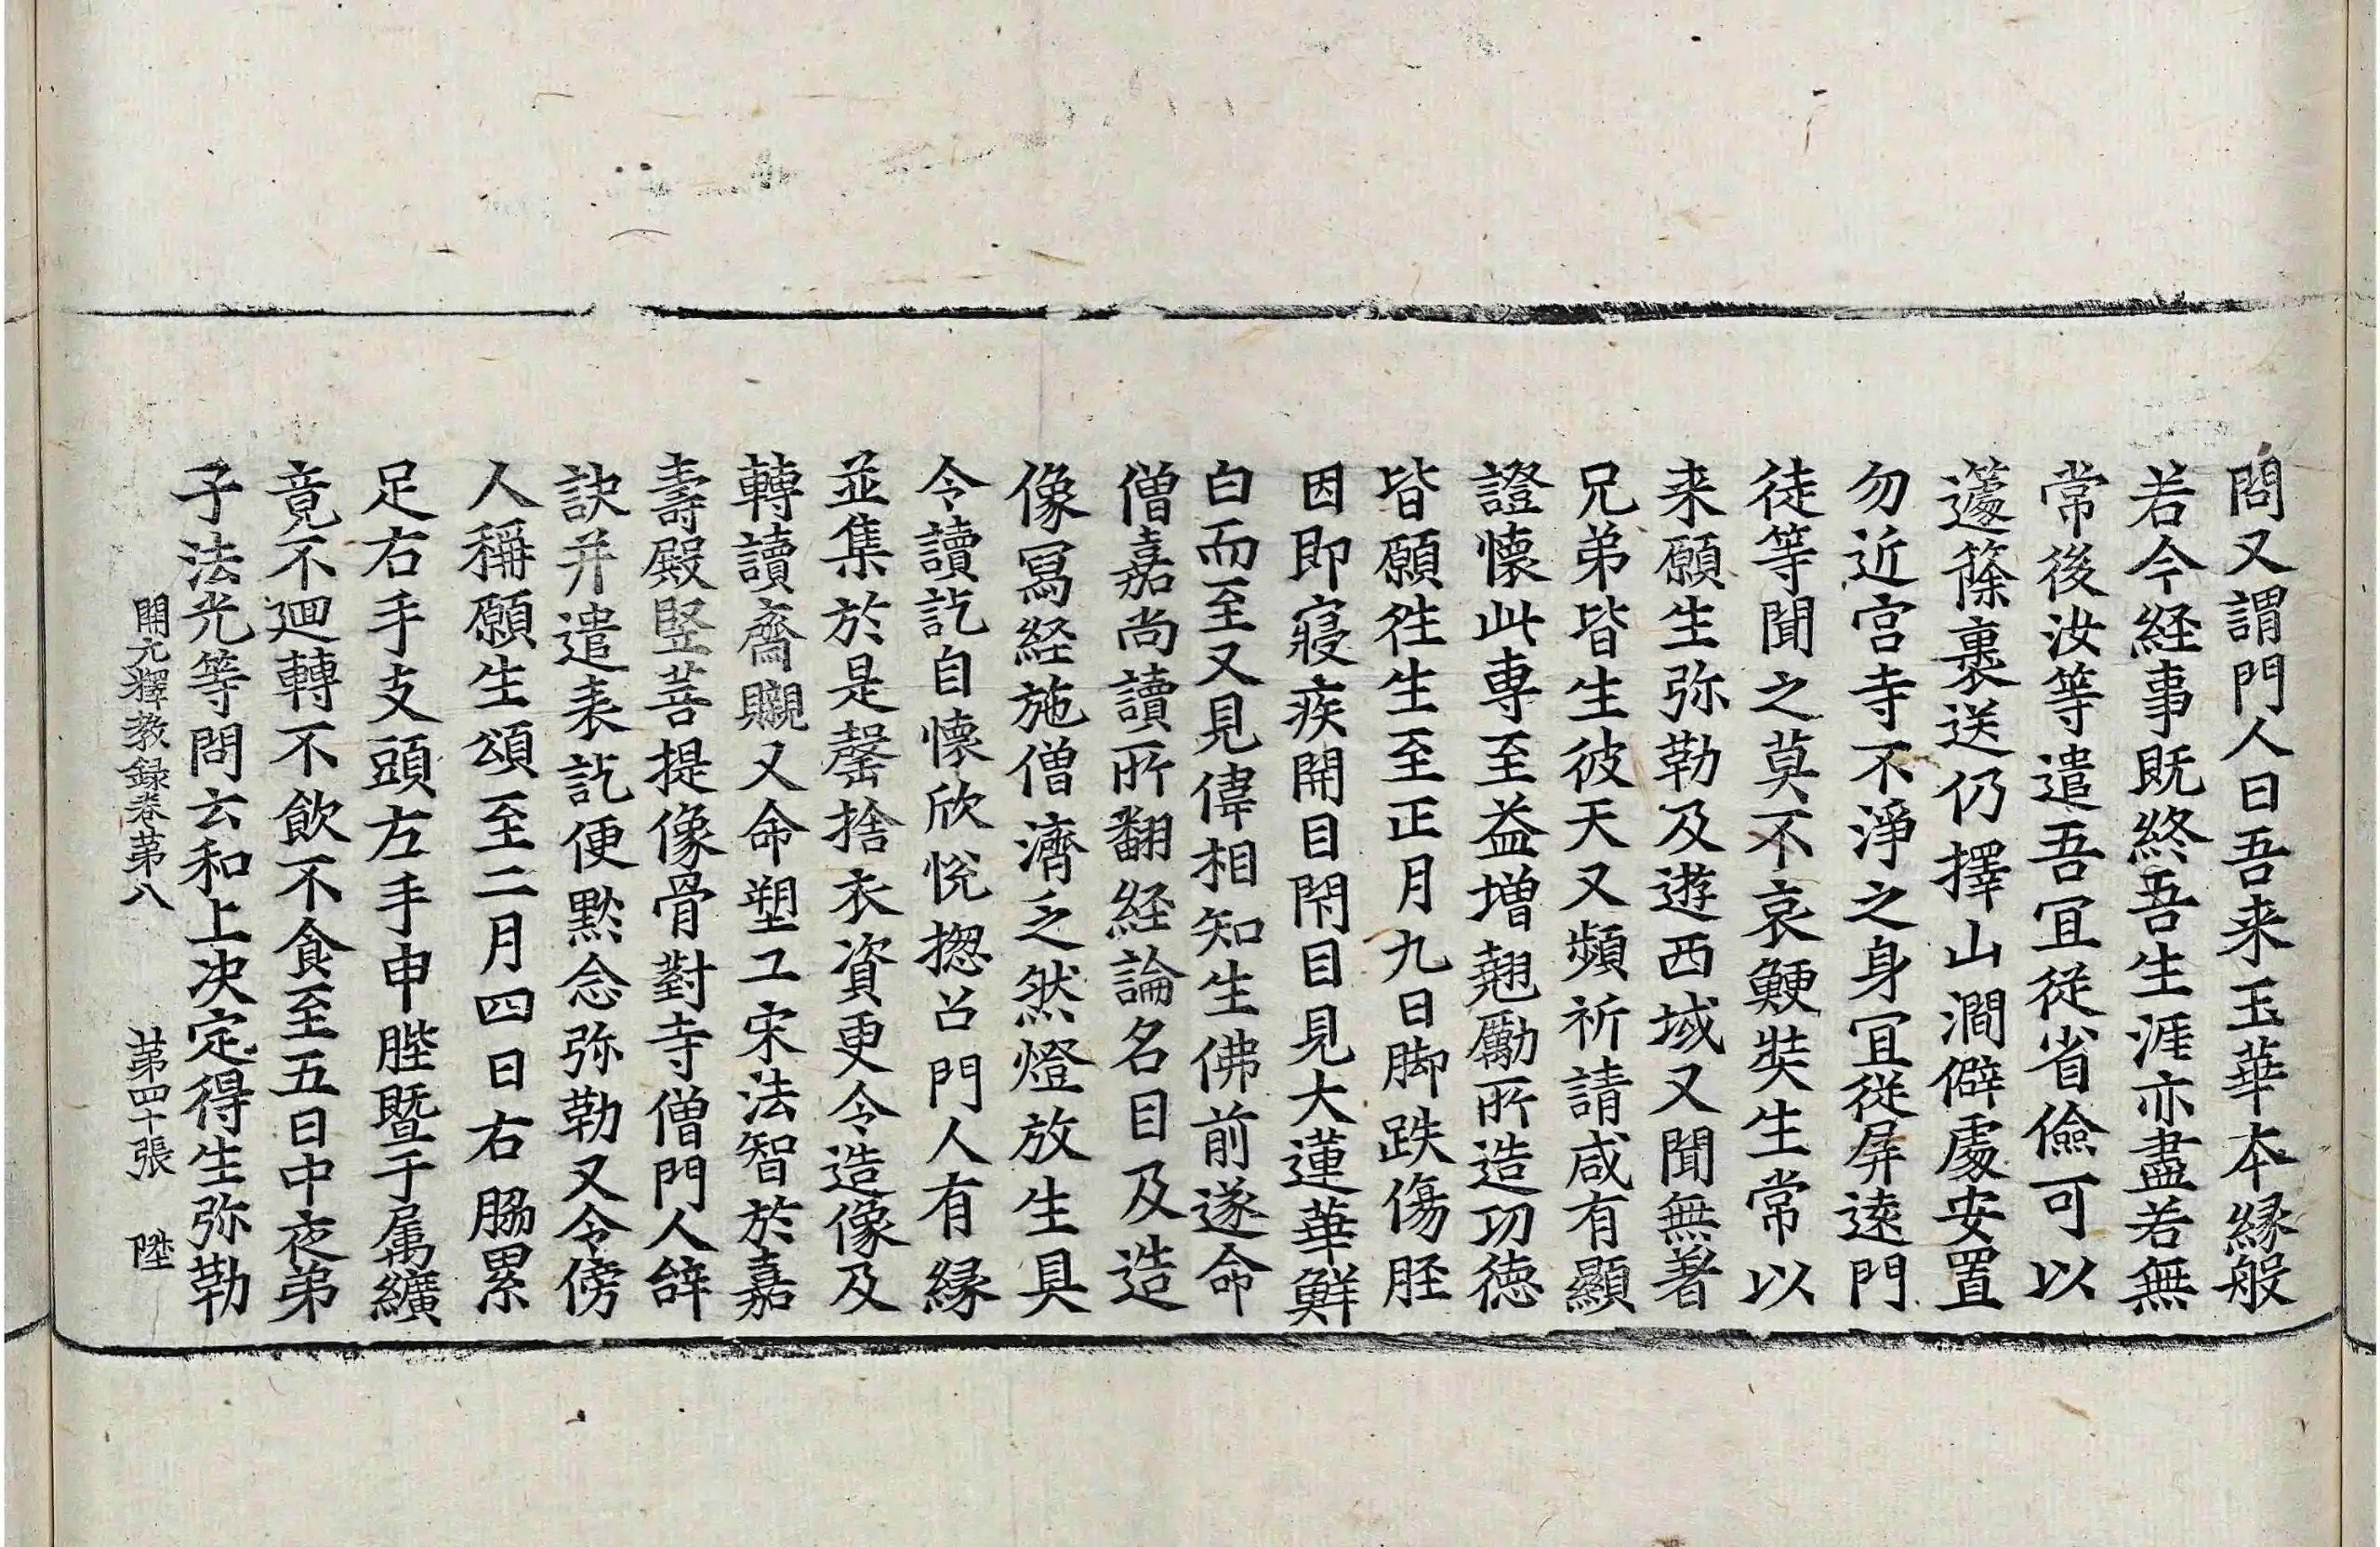 問又謂門人曰吾来玉華本縁般
若今経事既終吾生涯亦盡若無
常後汝等遣吾宜従省儉可以
蘧篨裹送仍擇山澗僻處安置
勿近宫寺不淨之身宜従屏遠門
徒等聞之莫不哀鯁奘生常以
来願生弥勒及遊西域又聞無著
兄弟皆生彼天又頻祈請咸有顯
證懐此専至益增翹勵所造功徳
皆願徃生至正月九日脚跌傷胫
因即寢疾開目閇目見大蓮華鮮
白而至又見偉相知生佛前遂命
僧嘉尚讀所翻経論名目及造
像冩経施僧濟乏然燈放生具
令讀訖自懐欣悅揔召門人有縁
並集於是罄捨衣資更令造像及
轉讀齋䞋又命塑工宋法智於嘉
壽殿竪菩提像骨對寺僧門人辝
訣并遣表訖便黙念弥勒又令傍
人稱願生頌至二月四日右脇累
足右手支頭左手申䏶暨于属纊
竟不迴轉不飲不食至五日中夜弟
子法光等問云和上决定得生弥勒
開元釋教録卷苐八 苐四十張 陞